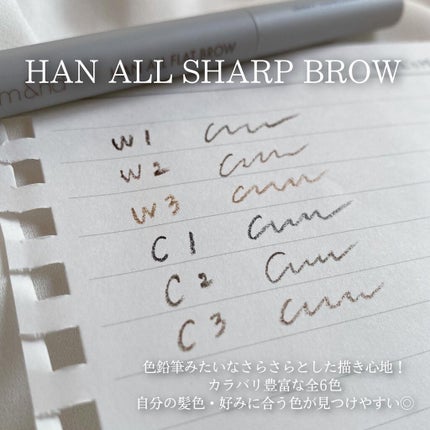 HAN ALL SHARP BROW
m&nd
FLAT BROW
W1
W2
W3
C1
C2
C3
色鉛筆みたいなさらさらとした描き心地！
カラバリ豊富な全6色
自分の髪色・好みに合う色が見つけやすい◎